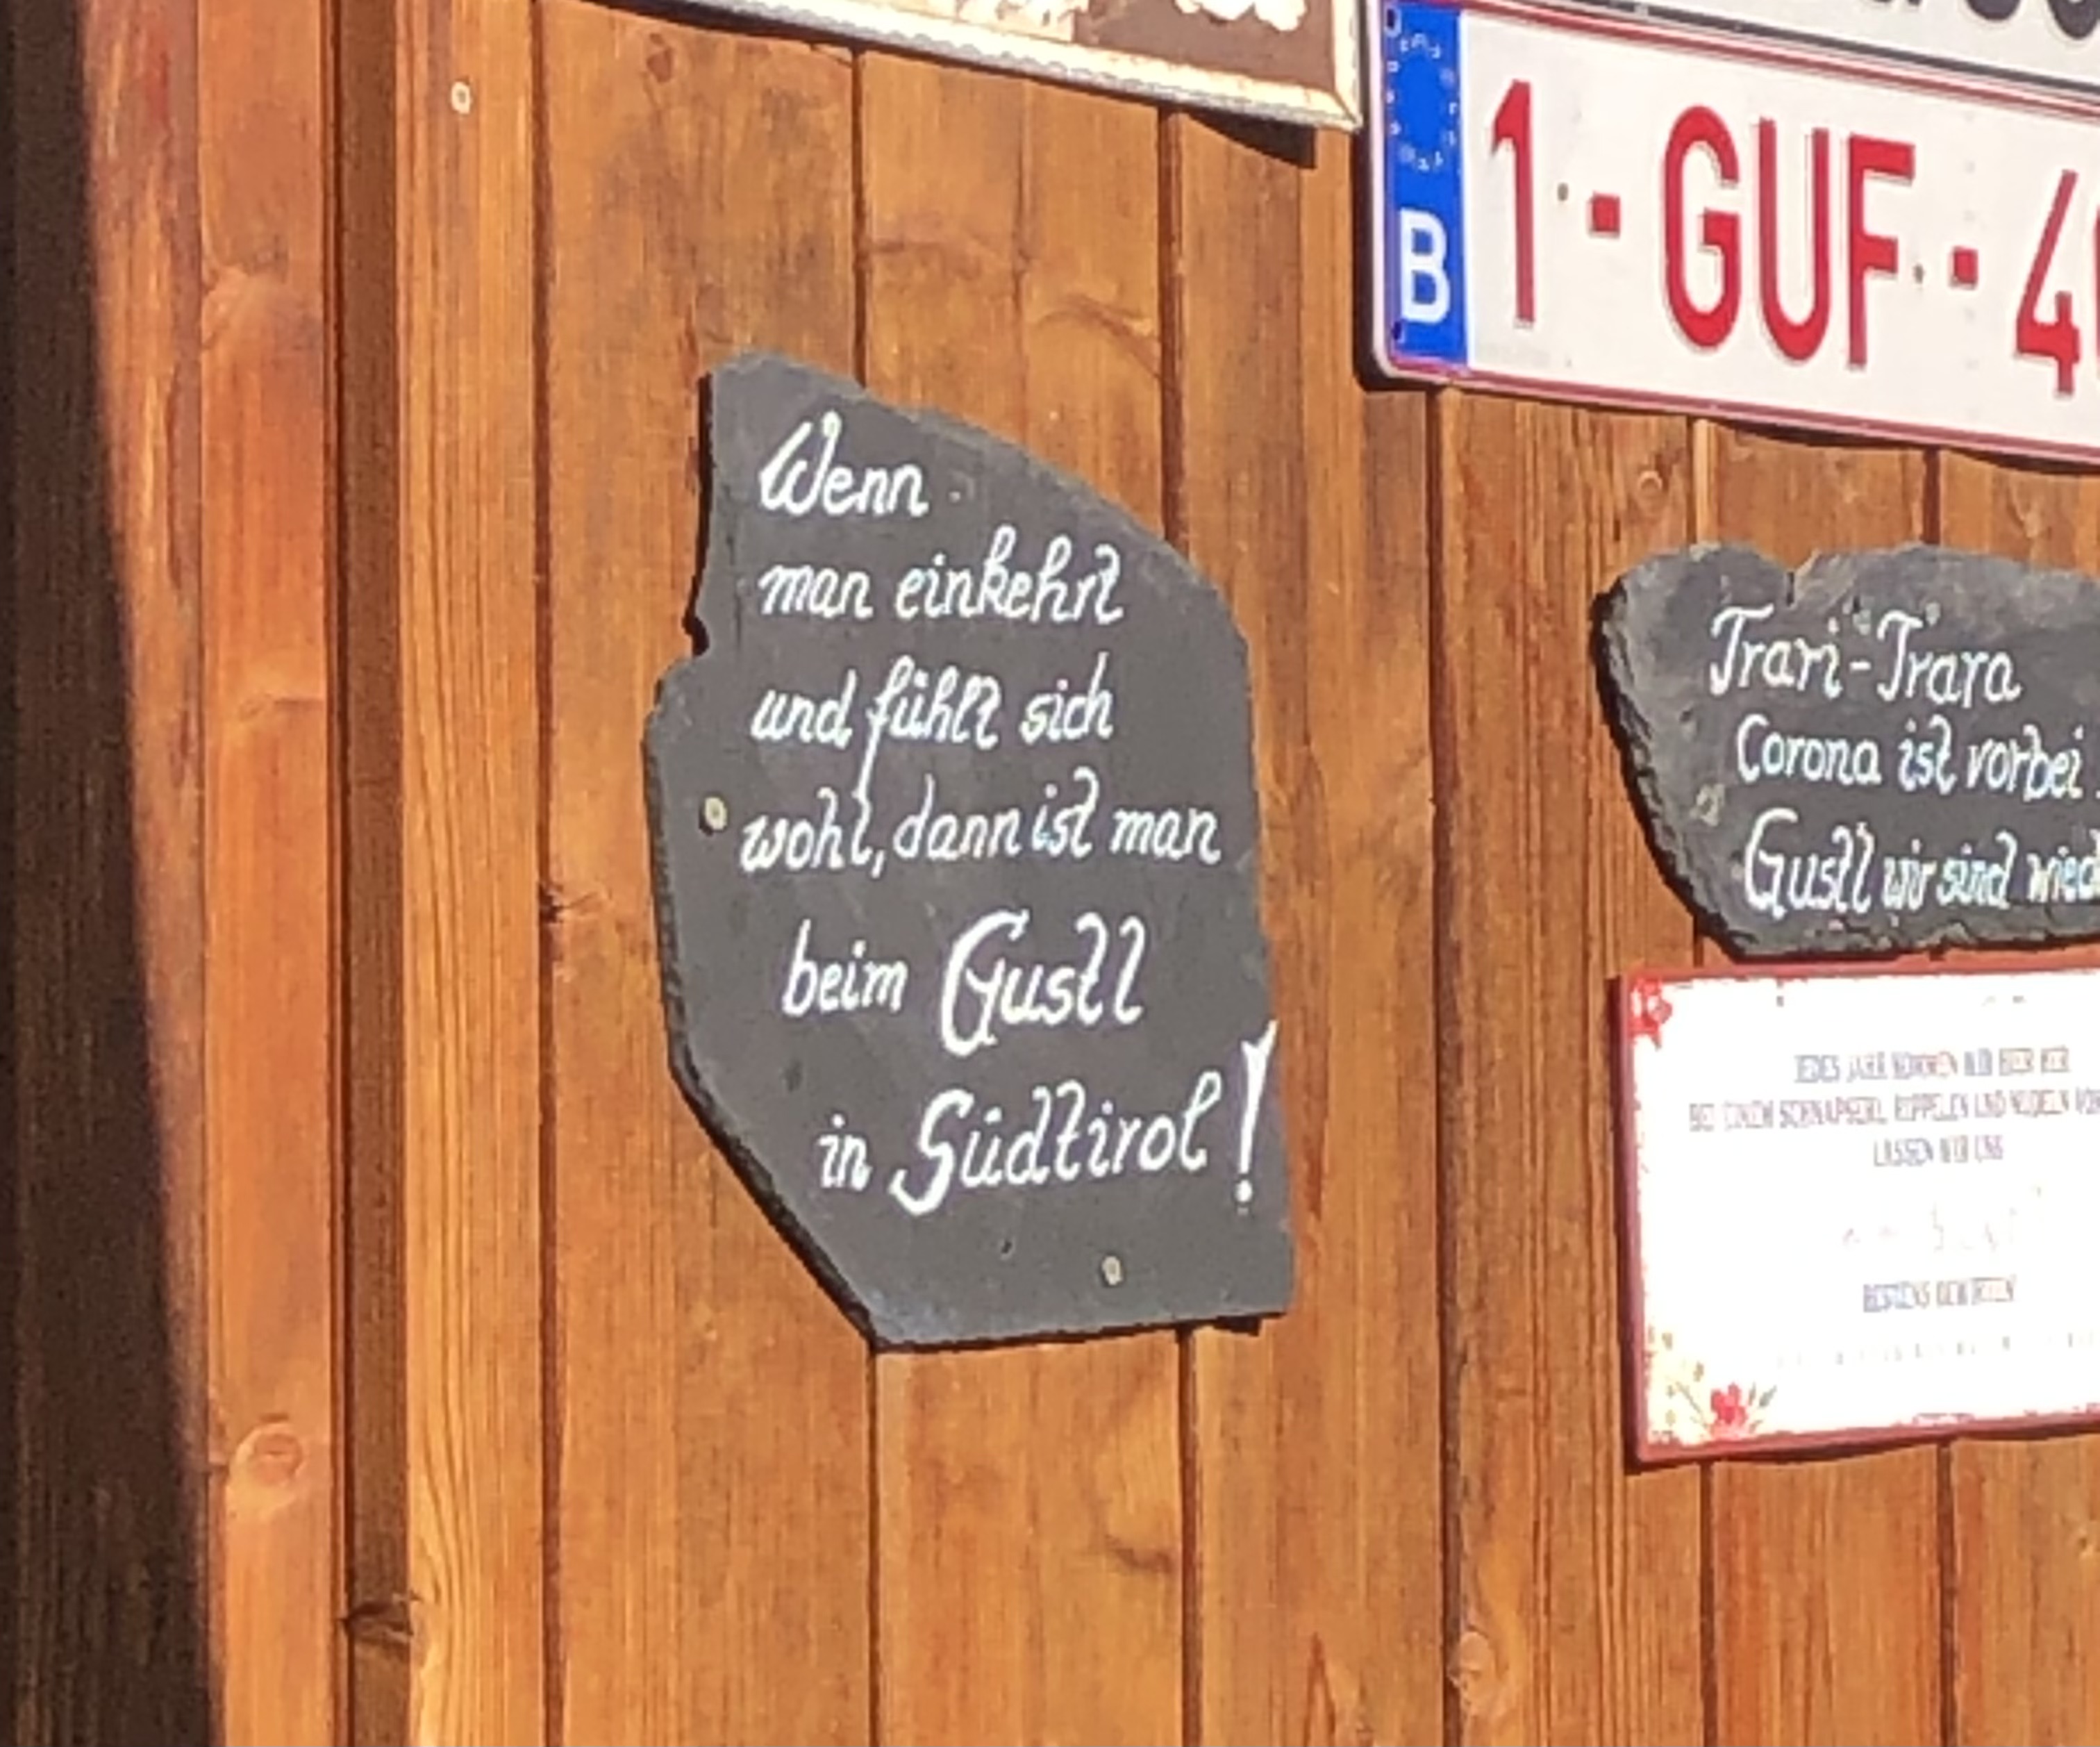 B 1-GUF-4
Wenn
man einkehrt
und fühlt sich
wohl, dann ist man
beim Gustl
in Südtirol!
Trari-Trara
Corona ist vorbei
Gustl wir sind wied
JEDES JAHR KOMMEN WIR HIER HER
BEI EINEM SCHNAPSERL, RIPPELEN UND NUDELN VOM
LASSEN WIR UNS
BESTENS BEWIRTEN